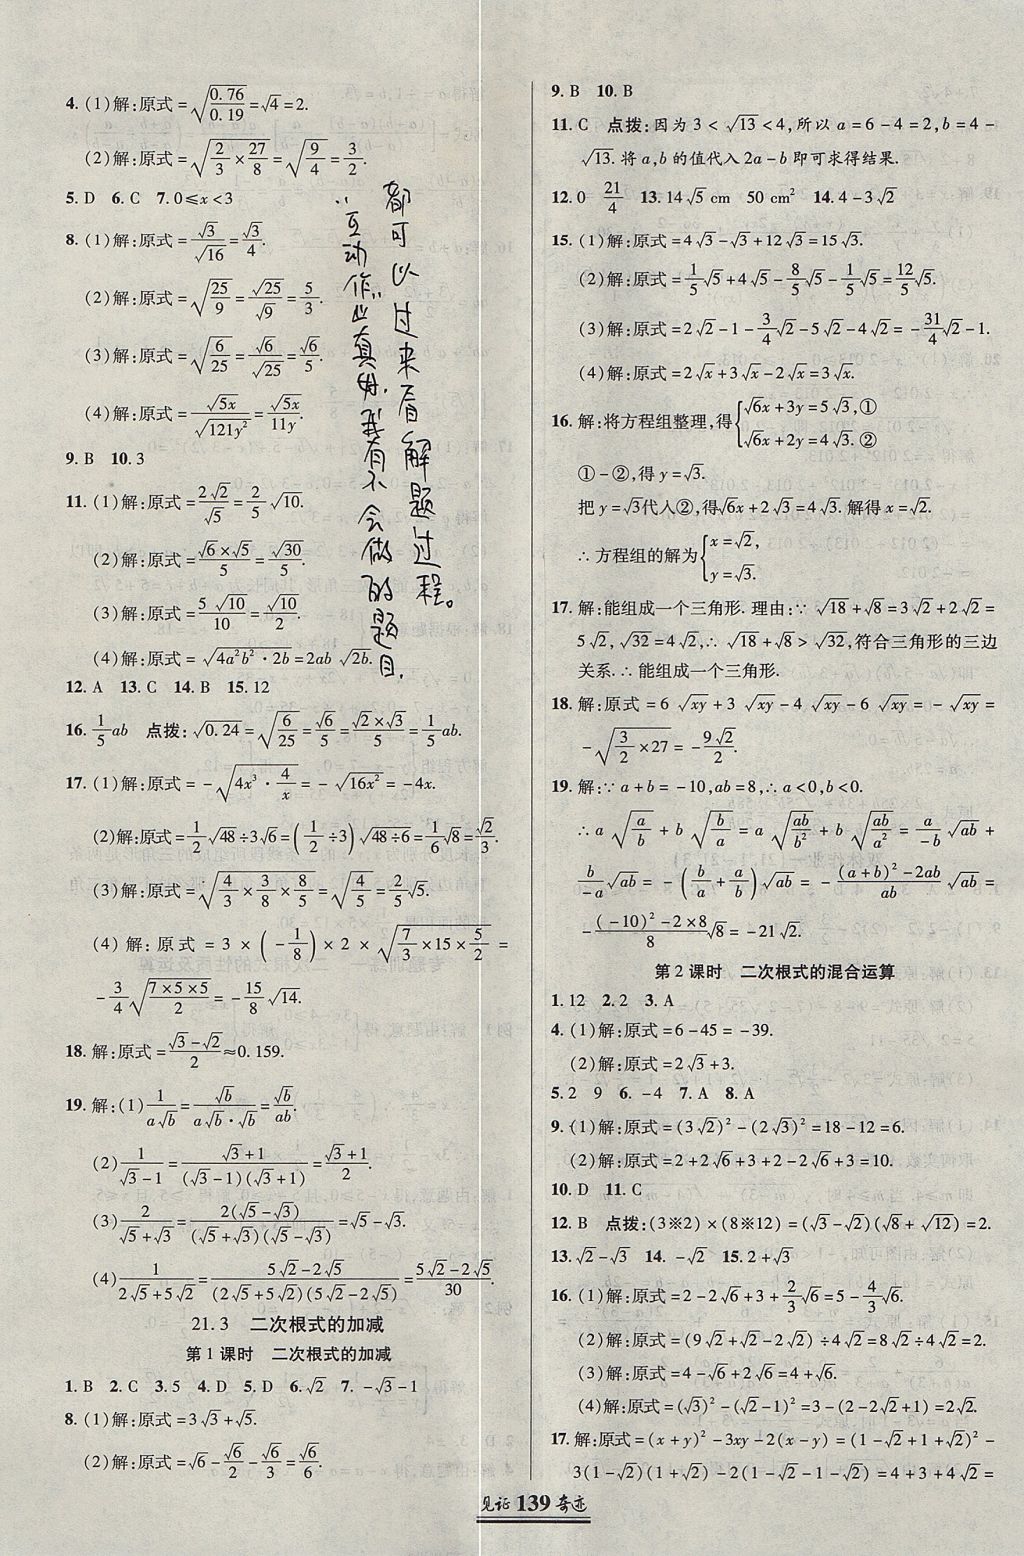 4. (1)解:原式=√(0.76/0.19)=√4=2.
(2)解:原式=√(2/3×27/8)=√(9/4)=3/2.
5. D 6. C 7. 0≤x<3
8. (1)解:原式=√3/√16=√3/4.
(2)解:原式=√(25/9)=√25/√9=5/3.
(3)解:原式=√(6/25)=√6/√25=√6/5.
(4)解:原式=√(5x)/√(121y²)=√(5x)/11y.
9. B 10. 3
11. (1)解:原式=2√2/√5=2/5√10.
(2)解:原式=√(6×5)/5=√30/5.
(3)解:原式=5√10/10=√10/2.
(4)解:原式=√(4a²b²·2b)=2ab√(2b).
12. A 13. C 14. B 15. 12
16. 1/5ab 点拨:√0.24=√(6/25)=√6/5=(√2×√3)/5=1/5ab.
17. (1)解:原式=-√(4x³·4/x)=-√(16x²)=-4x.
(2)解:原式=1/2√48÷3√6=(1/2÷3)√(48÷6)=1/6√8=√2/3.
(3)解:原式=√(4/3×3/8×8/5)=√(4/5)=2/5√5.
(4)解:原式=3×(-1/8)×2×√(7/3×15×5/2)=
-3/4√((7×5×5)/2)=-15/8√14.
18. 解:原式=(√3-√2)/2≈0.159.
19. 解:(1)1/(a√b)=√b/(a√b·√b)=√b/ab.
(2)1/(√3-1)=(√3+1)/((√3-1)(√3+1))=(√3+1)/2.
(3)2/(√5+√3)=2(√5-√3)/((√5+√3)(√5-√3))=√5-√3.
(4)1/(2√5+5√2)=(5√2-2√5)/((2√5+5√2)(5√2-2√5))=(5√2-2√5)/30.
21.3 二次根式的加减
第1课时 二次根式的加减
1. B 2. C 3. 5 4. D 5. D 6. √2 7. -√3-1
8. (1)解:原式=3√3+√5.
(2)解:原式=√6-√6/2-√6/3=√6/6.
都可以过来看解题过程。
“互动作业”真好,我有不会做的题目
9. B 10. B
11. C 点拨:因为3<√13<4,所以a=6-4=2,b=4-
√13.将a,b的值代入2a-b即可求得结果.
12. 0 21/4 13. 14√5 cm 50 cm² 14. 4-3√2
15. (1)解:原式=4√3-√3+12√3=15√3.
(2)解:原式=1/5√5+4√5-8/5√5-1/5√5=12/5√5.
(3)解:原式=2√2-1-3/4√2-5√2-4√2=-31/4√2-1.
(4)解:原式=2√x+3√x-2√x=3√x.
16. 解:将方程组整理,得{√6x+3y=5√3,①
√6x+2y=4√3.②
①-②,得y=√3.
把y=√3代入②,得√6x+2√3=4√3.解得x=√2.
∴方程组的解为{x=√2,
y=√3.
17. 解:能组成一个三角形.理由:∵√18+√8=3√2+2√2=
5√2,√32=4√2,∴√18+√8>√32,符合三角形的三边
关系.∴能组成一个三角形.
18. 解:原式=6√(xy)+3√(xy)-4√(xy)-6√(xy)=-√(xy)=
-√(3/2×27)=-9√2/2.
19. 解:∵a+b=-10,ab=8,∴a<0,b<0.
∴a√(a/b)+b√(b/a)=a√(ab/b²)+b√(ab/a²)=a/-b√(ab)+
b/-a√(ab)=-(b/a+a/b)√(ab)=-((a+b)²-2ab)/ab√(ab)=
-((-10)²-2×8)/8√8=-21√2.
第2课时 二次根式的混合运算
1. 12 2. 2 3. A
4. (1)解:原式=6-45=-39.
(2)解:原式=2√3+3.
5. 2 9 6. -4 7. A 8. A
9. (1)解:原式=(3√2)²-(2√3)²=18-12=6.
(2)解:原式=2+2√6+3-2√6+2+3=10.
10. D 11. C
12. B 点拨:(3※2)×(8※12)=(√3-√2)(√8+√12)=2.
13. √2-√3 14. -√2 15. 2+√3
16. (1)解:原式=2-2√6+3+2/3√6=5-4/3√6.
(2)解:原式=(9√2+√2-2√2)÷4√2=8√2÷4√2=2.
(3)解:原式=4-√6+2√6=4+√6.
(4)解:原式=(√3)²-(√2-1)²=3-(2-2√2+1)=2√2.
17. 解:原式=(x+y)²-3xy-2(x-y)=(1-√2+1+√2)²-
3(1-√2)(1+√2)-2(1-√2-1-√2)=4+3+4√2=
见证139奇迹